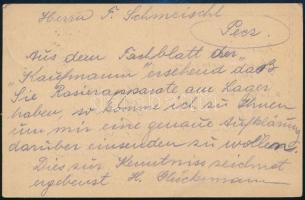 Herrn F. Schmeischl
Pecs.
Aus dem Fachblatt der
"Kaufmann" ersehend daß
Sie Rasierapparate am Lager
haben, so komme ich zu Ihnen
um mir eine genaue Aufklärung
darüber einsenden zu wollen.
Dies zur Kenntniss zeichnet
ergebenst H. Glückemann